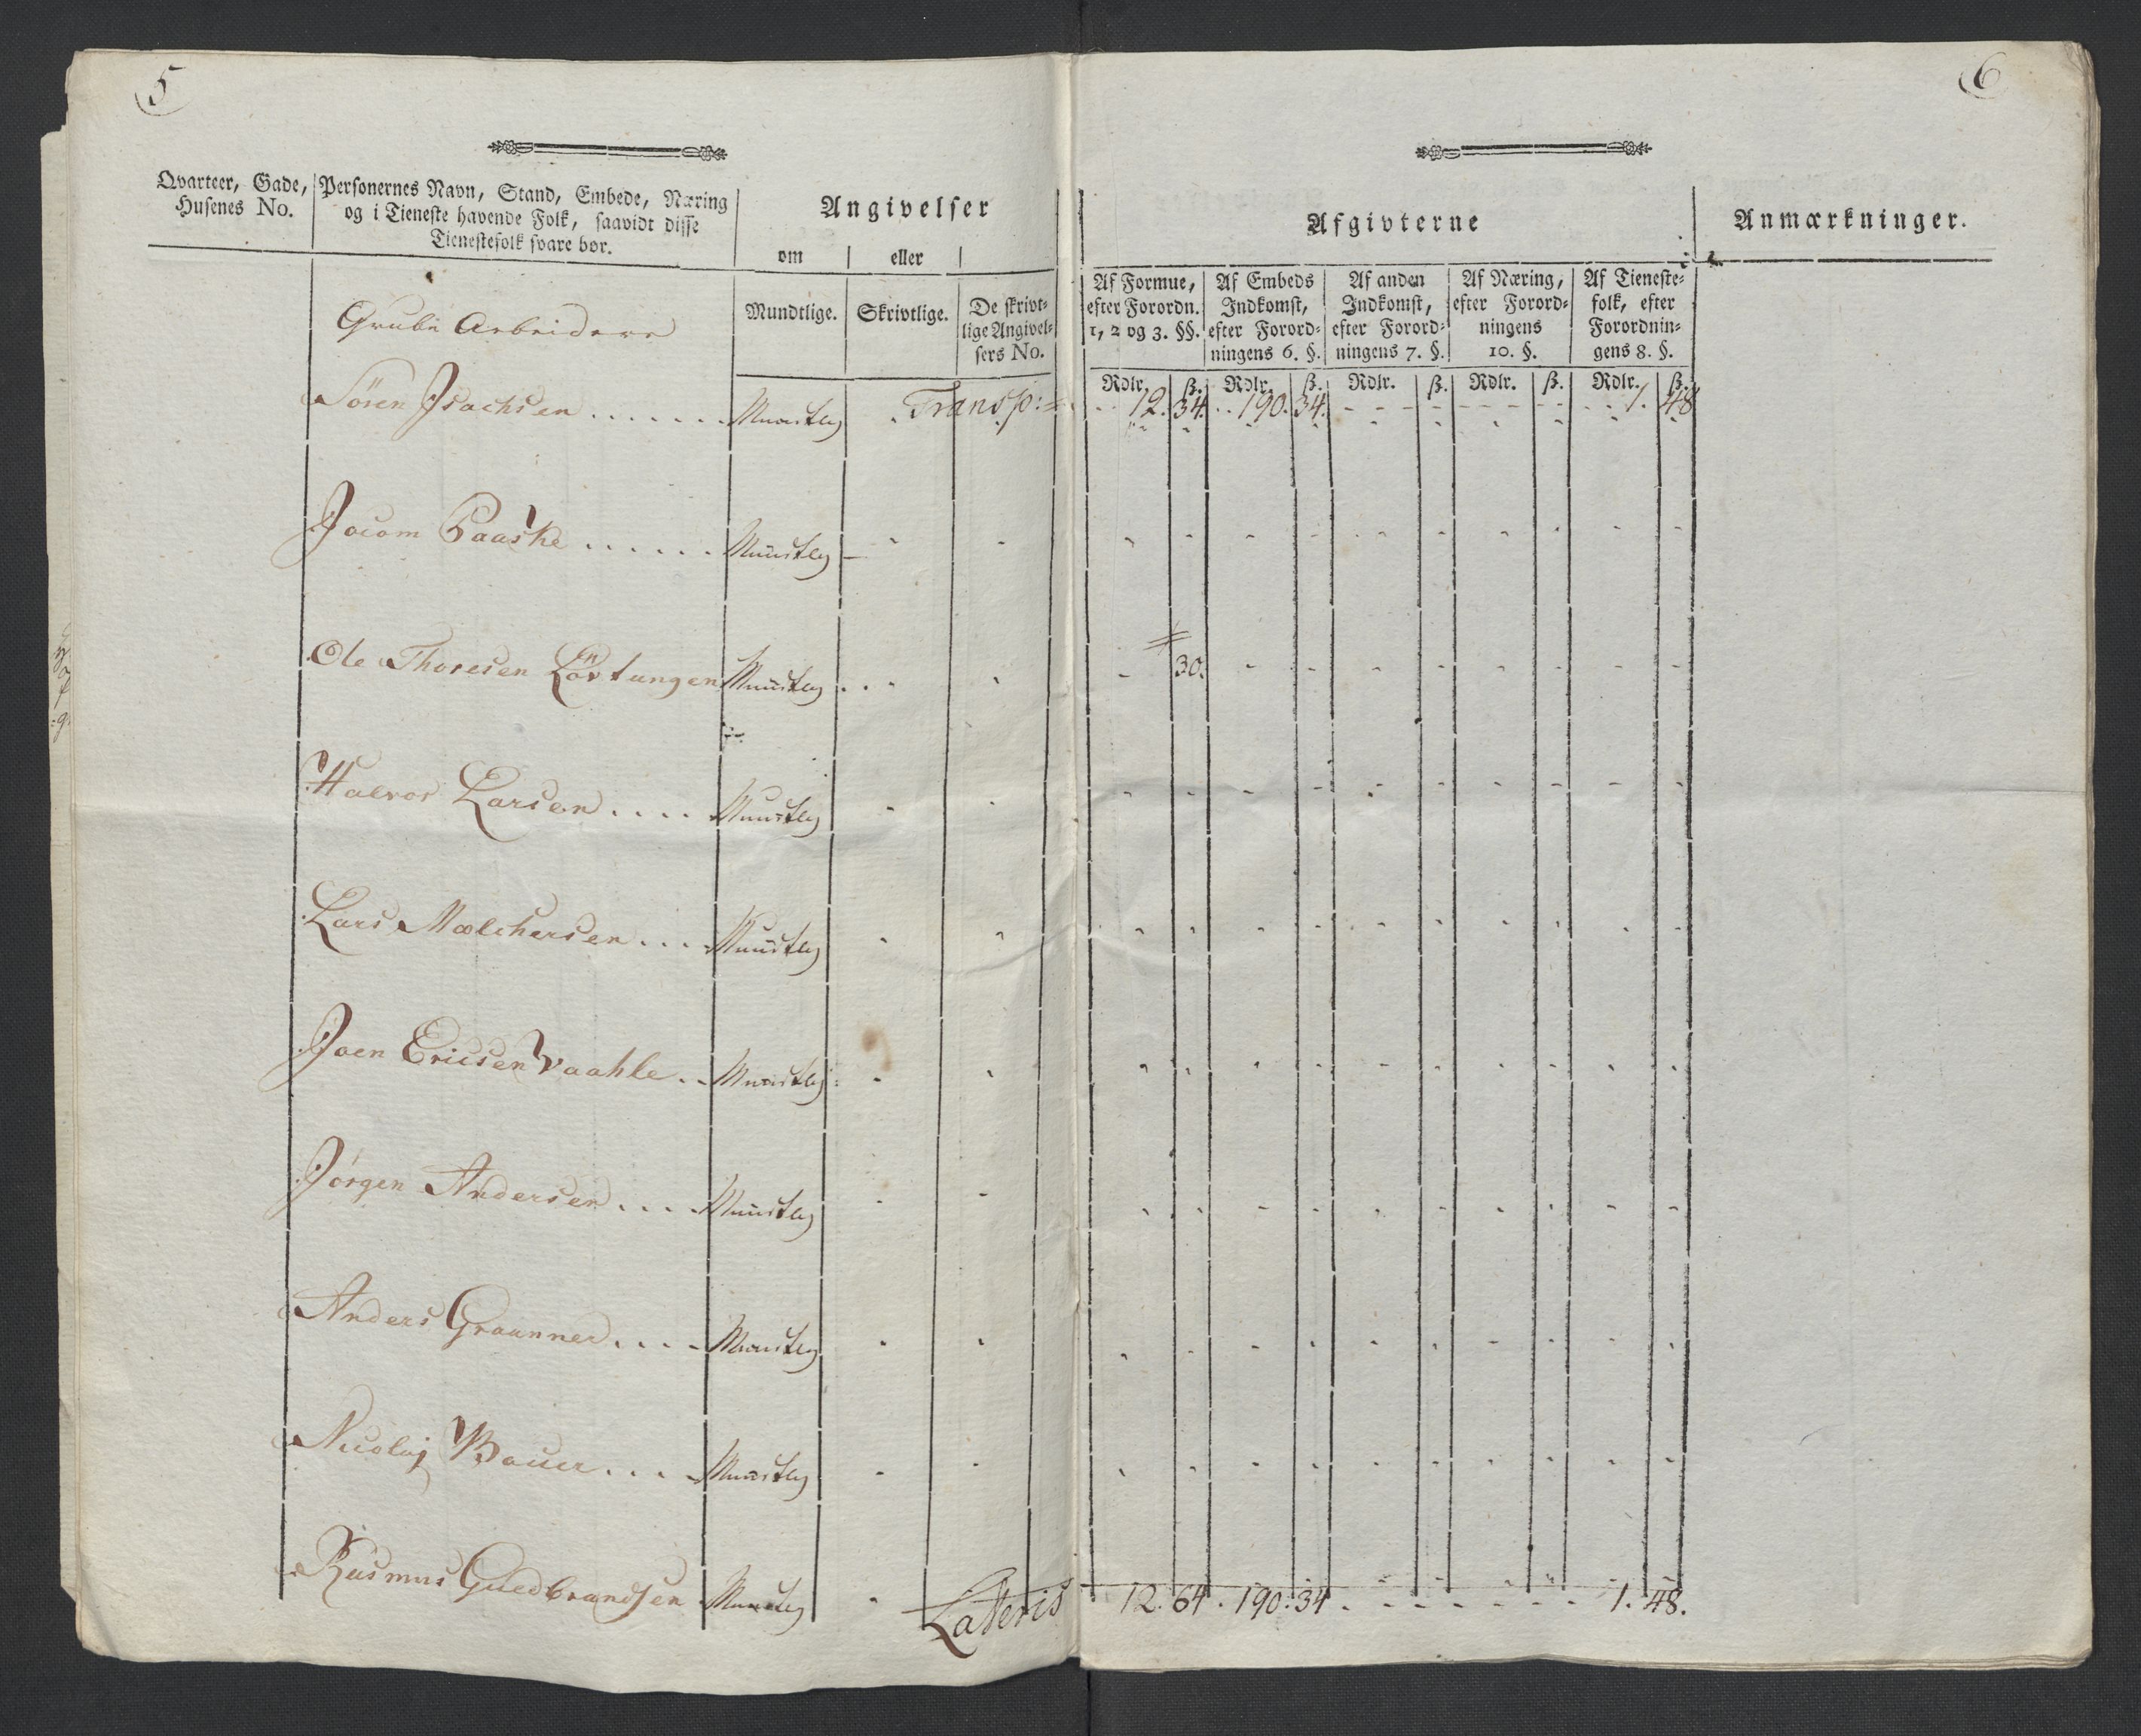 5
6
Qvarteer, Gade, Husenes No.
Personernes Navn, Stand, Embede, Næring
og i Tieneste havende Folk, saavidt disse
Tienestefolk svare bør.
Angivelser
om
eller
Mundtlige.
Skrivtlige.
De skrivt-
lige Angivel-
sers No.
Afgivterne
Anmærkninger.
Af Formue,
efter Forordn.
1, 2 og 3. §§.
Af Embeds
Indkomst,
efter Forord-
ningens 6. §.
Af anden
Indkomst,
efter Forord-
ningens 7. §.
Af Næring,
efter Forord-
ningens
10. §.
Af Tieneste-
folk, efter
Forordnin-
gens 8. §.
Rdlr. ß. Rdlr. ß. Rdlr. ß. Rdlr. ß. Rdlr. ß.
Grube Arbeidere
Transp: 12. 34. 190. 34. 1. 48
Sören Isachsen Mundtlig
Jocom Paaske Mundtlig
Ole Thoresen Mundtlig 30.
Halvor Larsen Mundtlig
Lars Mælchersen Mundtlig
Joen Ericsen Vaahle Mundtlig
Jörgen Andersen Mundtlig
Anders Mundtlig
Nicolaj Bauer Mundtlig
Rasmus Guldbrandsen Mundtlig
Lateris 12. 64. 190. 34. 1. 48.